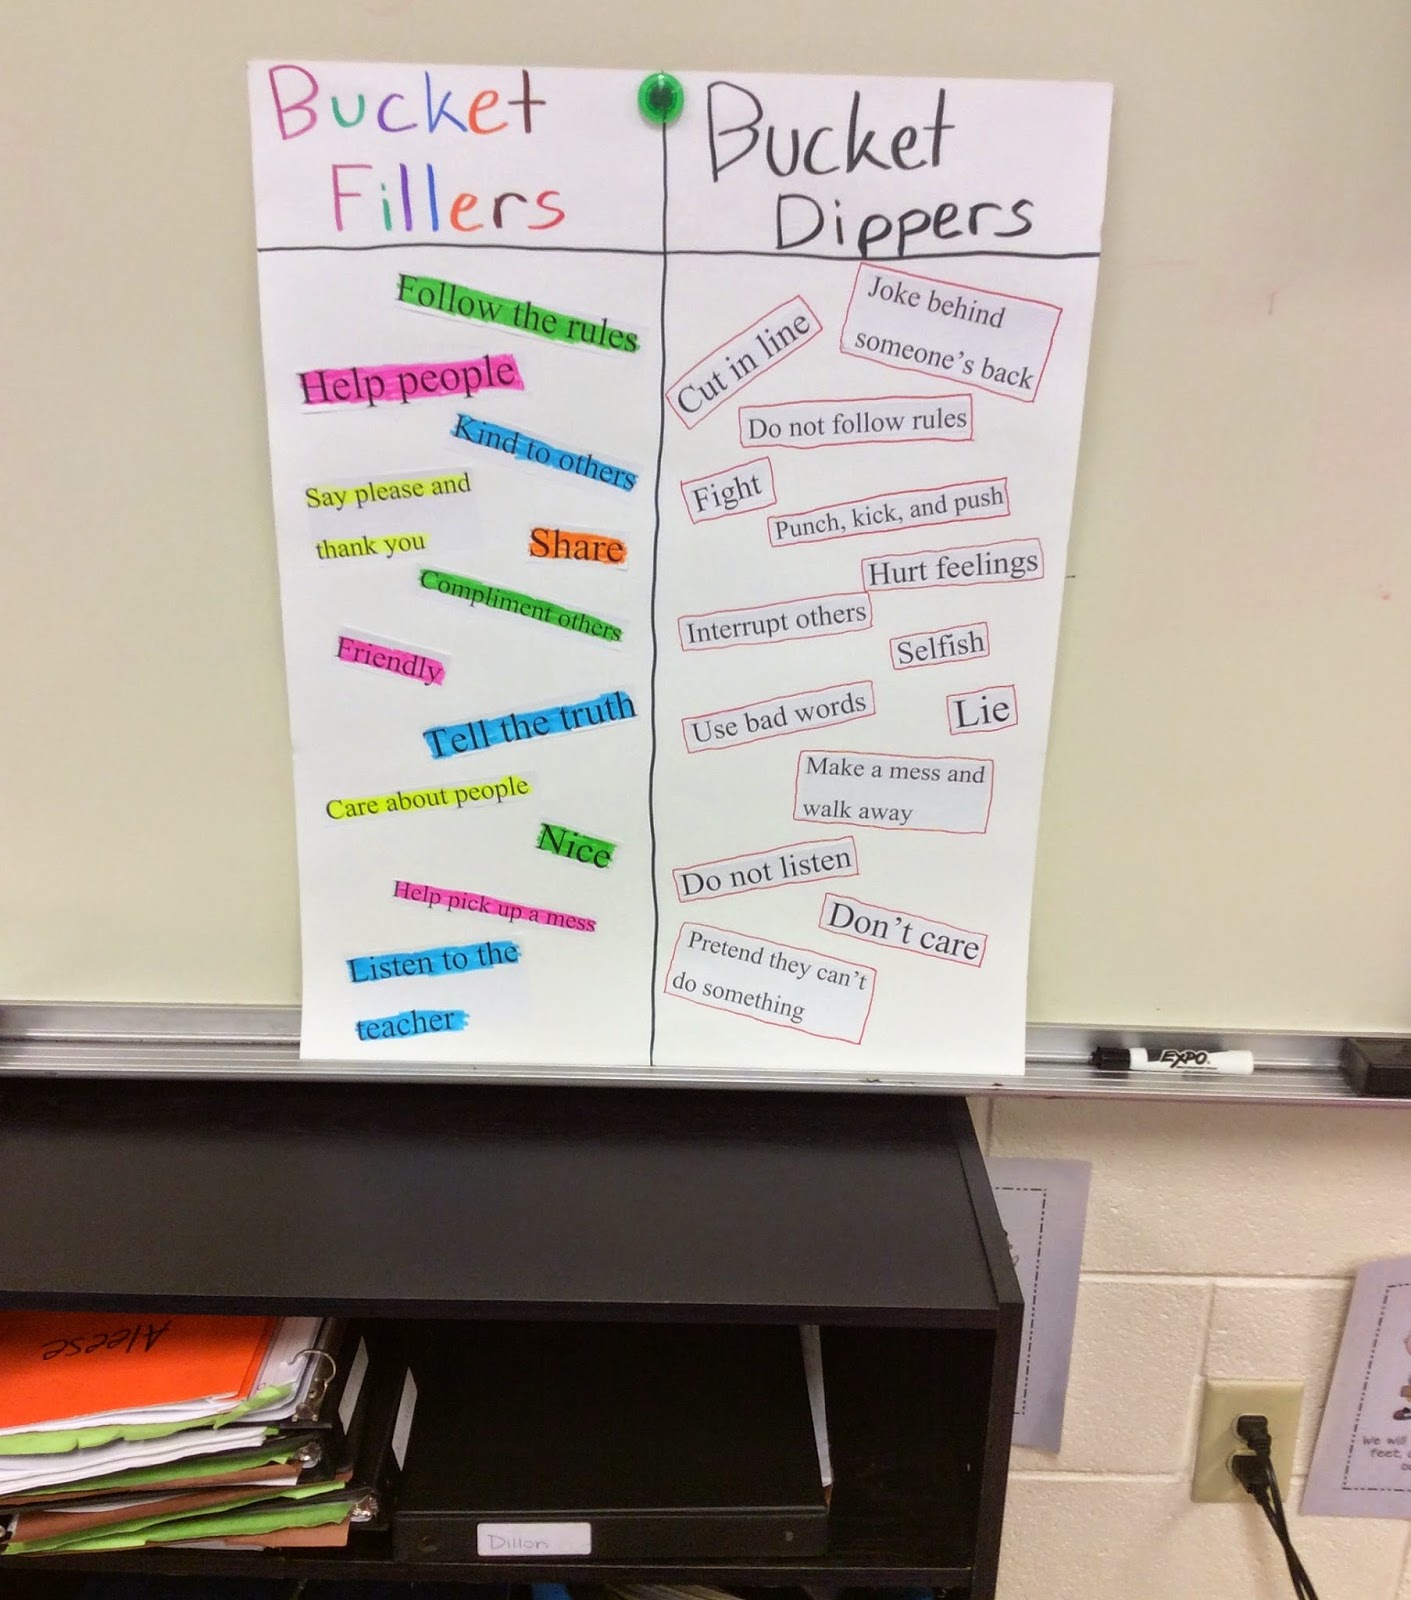 Bucket
Fillers
Follow the rules
Help people
Kind to others
Say please and
thank you
Share
Compliment others
Friendly
Tell the truth
Care about people
Nice
Help pick up a mess
Listen to the
teacher
Bucket
Dippers
Joke behind
someone's back
Cut in line
Do not follow rules
Fight
Punch, kick, and push
Hurt feelings
Interrupt others
Selfish
Use bad words
Lie
Make a mess and
walk away
Do not listen
Don't care
Pretend they can't
do something
EXPO
Aleese
Dillon
We will
feet,